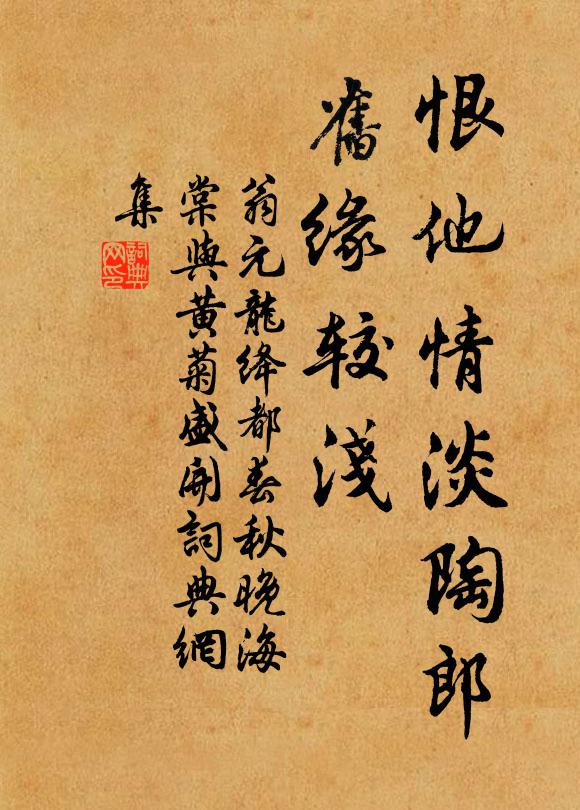 恨他情淡陶郎
舊緣较淺
翁元龍绛都春秋晚海
棠與黄菊盛開詞典網
集
詞典
网印